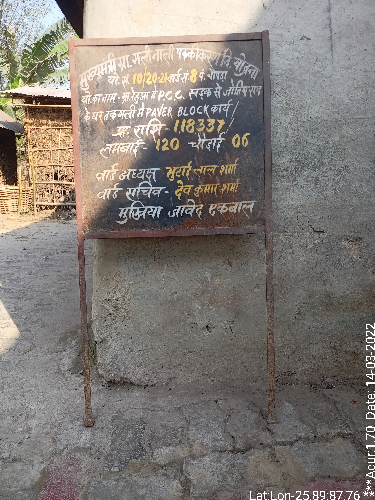 मुख्यमंत्री ग्रा. गली नाली पक्कीकरण नि. योजना
यो. सं. 10/20-21 वार्ड सं. 8 पं.
यो. का नाम- में P.C.C. सड़क से
के घर तक गली में PAVER BLOCK कार्य
प्रा. राशि- 1,18337/
लम्बाई- 120 चौड़ाई 06
वार्ड अध्यक्ष लाल शर्मा
वार्ड सचिव- देव कुमार शर्मा
मुखिया जावेद एकबाल
Lat:Lon-25.89:87.76
***Acur:1.70 Date: 14-03-2022